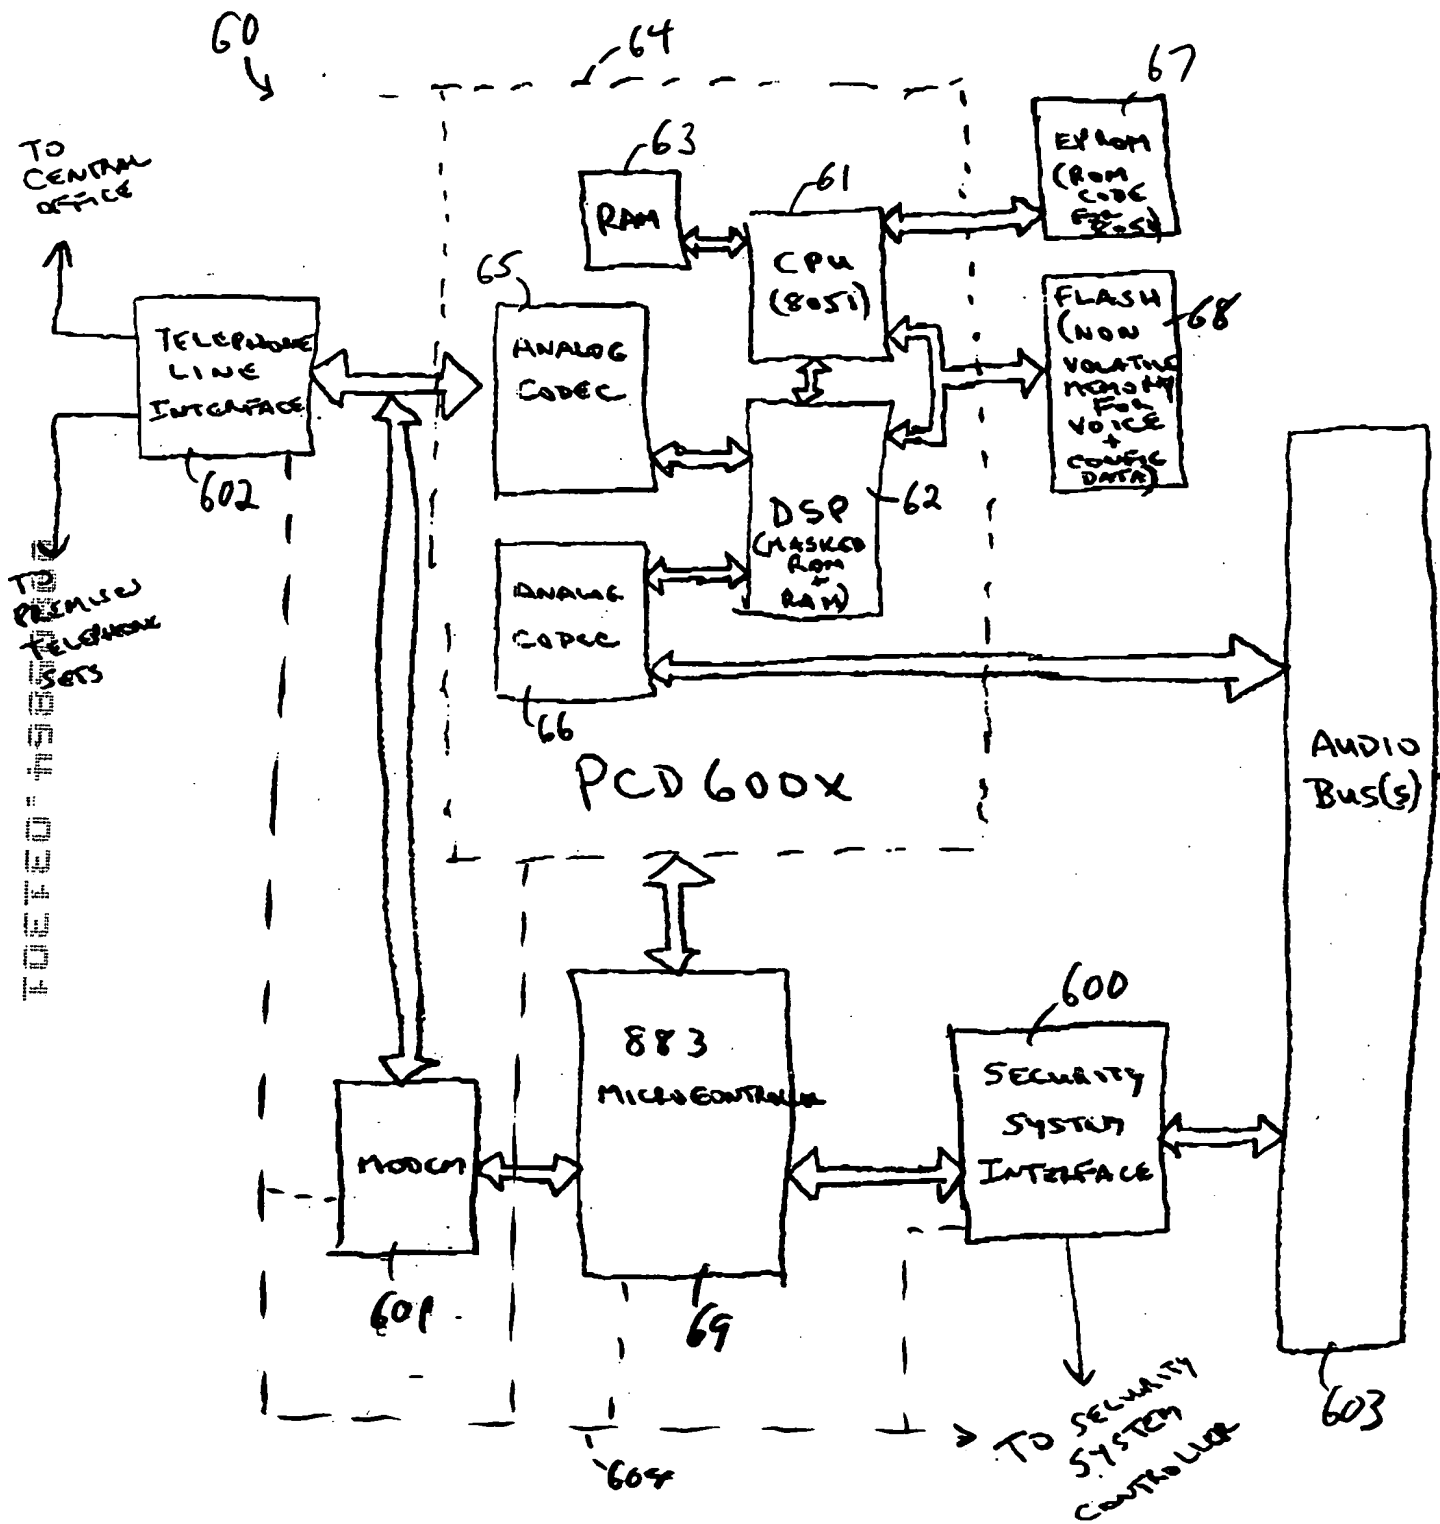 60
64
67
TO
CENTRAL
OFFICE
63
RAM
61
CPU
(8051)
EPROM
(ROM
CODE
FOR
8051)
65
ANALOG
CODEC
TELEPHONE
LINE
INTERFACE
602
FLASH
(NON
VOLATILE
MEMORY
FOR
VOICE
+
CONFIG
DATA)
68
62
DSP
(MASKED
ROM
+
RAM)
TO
PREMISES
TELEPHONE
SETS
ANALOG
CODEC
66
PCD 600X
AUDIO
BUS(S)
883
MICROCONTROLLER
600
SECURITY
SYSTEM
INTERFACE
MODEM
601
69
603
604
TO SECURITY
SYSTEM
CONTROLLER